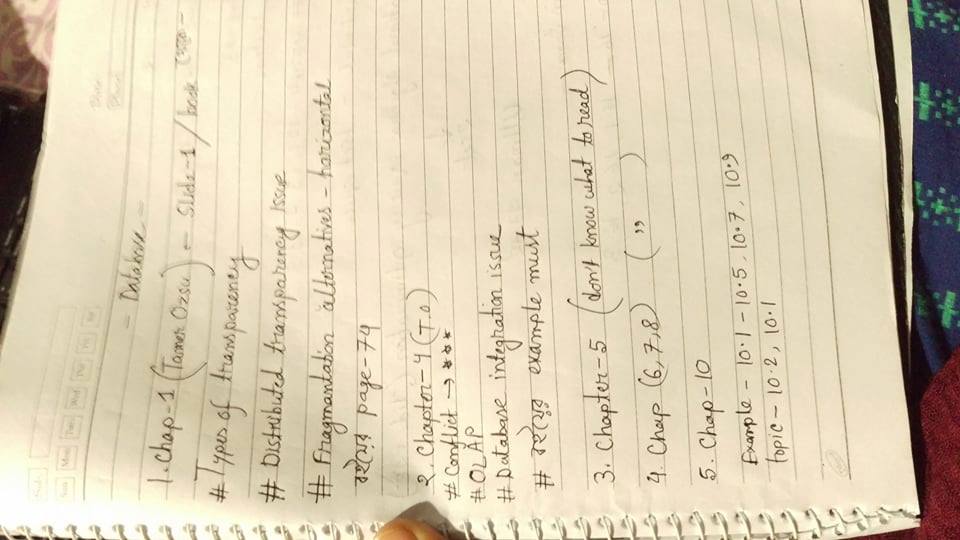 Sun Mon Tue Wed Thu Fri Sat
- Database -
1. Chap-1 (Tamer Ozsu) ← Slide-1 / book
# Types of transparency
# Distributed transparency issue
# Fragmantation alternatives - horizontal
বইয়ের page-74
2. Chapter-4 (T.O)
# Conflict → ***
# OLAP
# Database integration issue
# বইয়ের example must
3. Chapter-5 (don't know what to read)
4. Chap (6,7,8) ( " )
5. Chap-10
Example - 10.1 - 10.5, 10.7, 10.9
topic - 10.2, 10.1